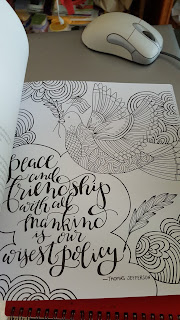 peace
and
friendship
with all
mankind
is our
wisest policy!
—THOMAS JEFFERSON